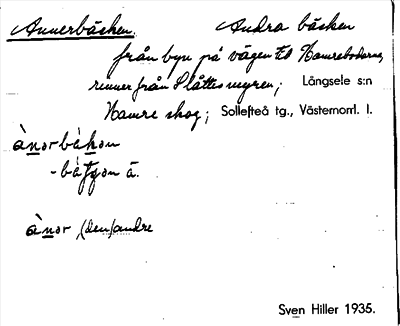 Annerbäcken. Andra bäcken
från byn på vägen till Hamrebodarna,
rinner från Slåttesmyren; Långsele s:n
Hamre skog; Sollefteå tg., Västernorrl. l.
ànərbàkən
-bà
ànər (den) andre
Sven Hiller 1935.